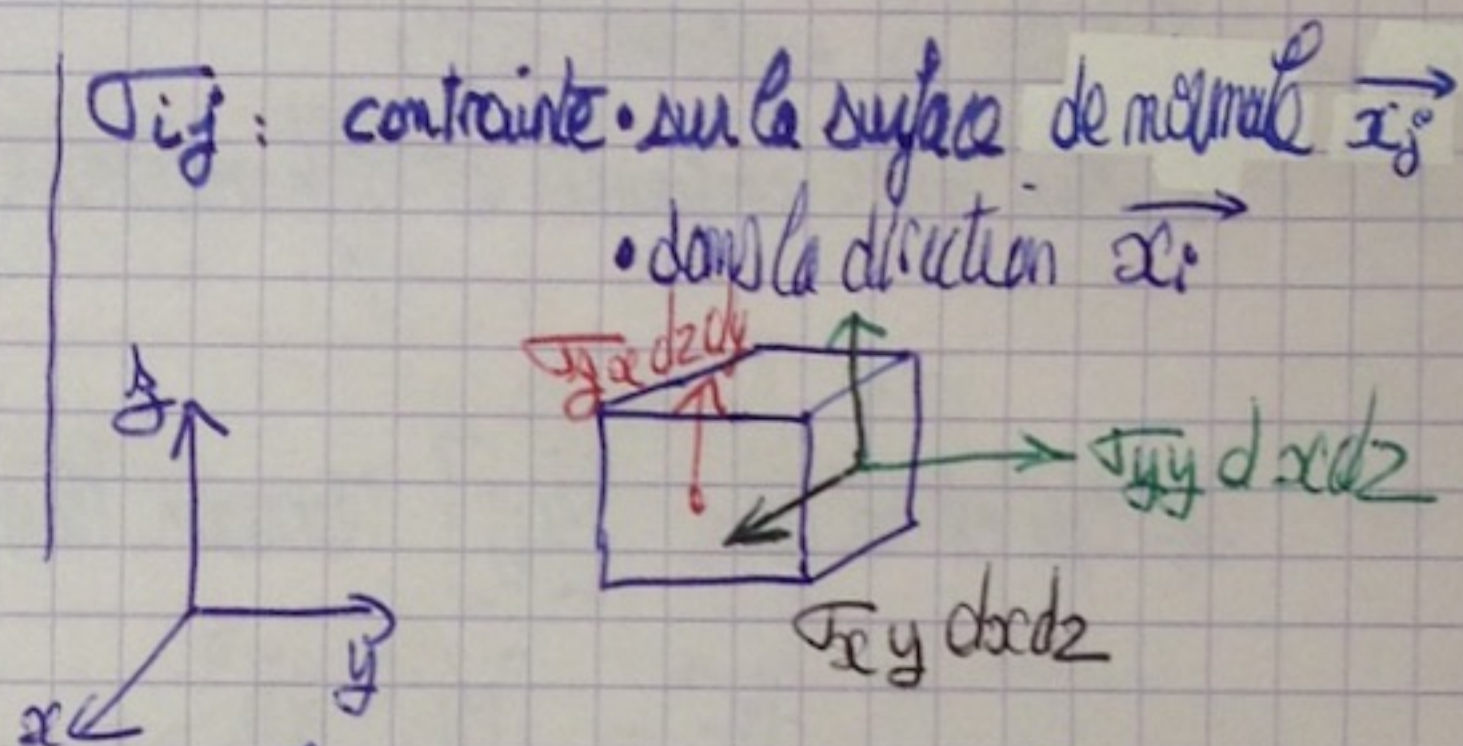 σij : contrainte • sur la surface de normale xj
• dans la direction xi
σzx dzdy
z
σyy dxdz
σxy dxdz
y
x